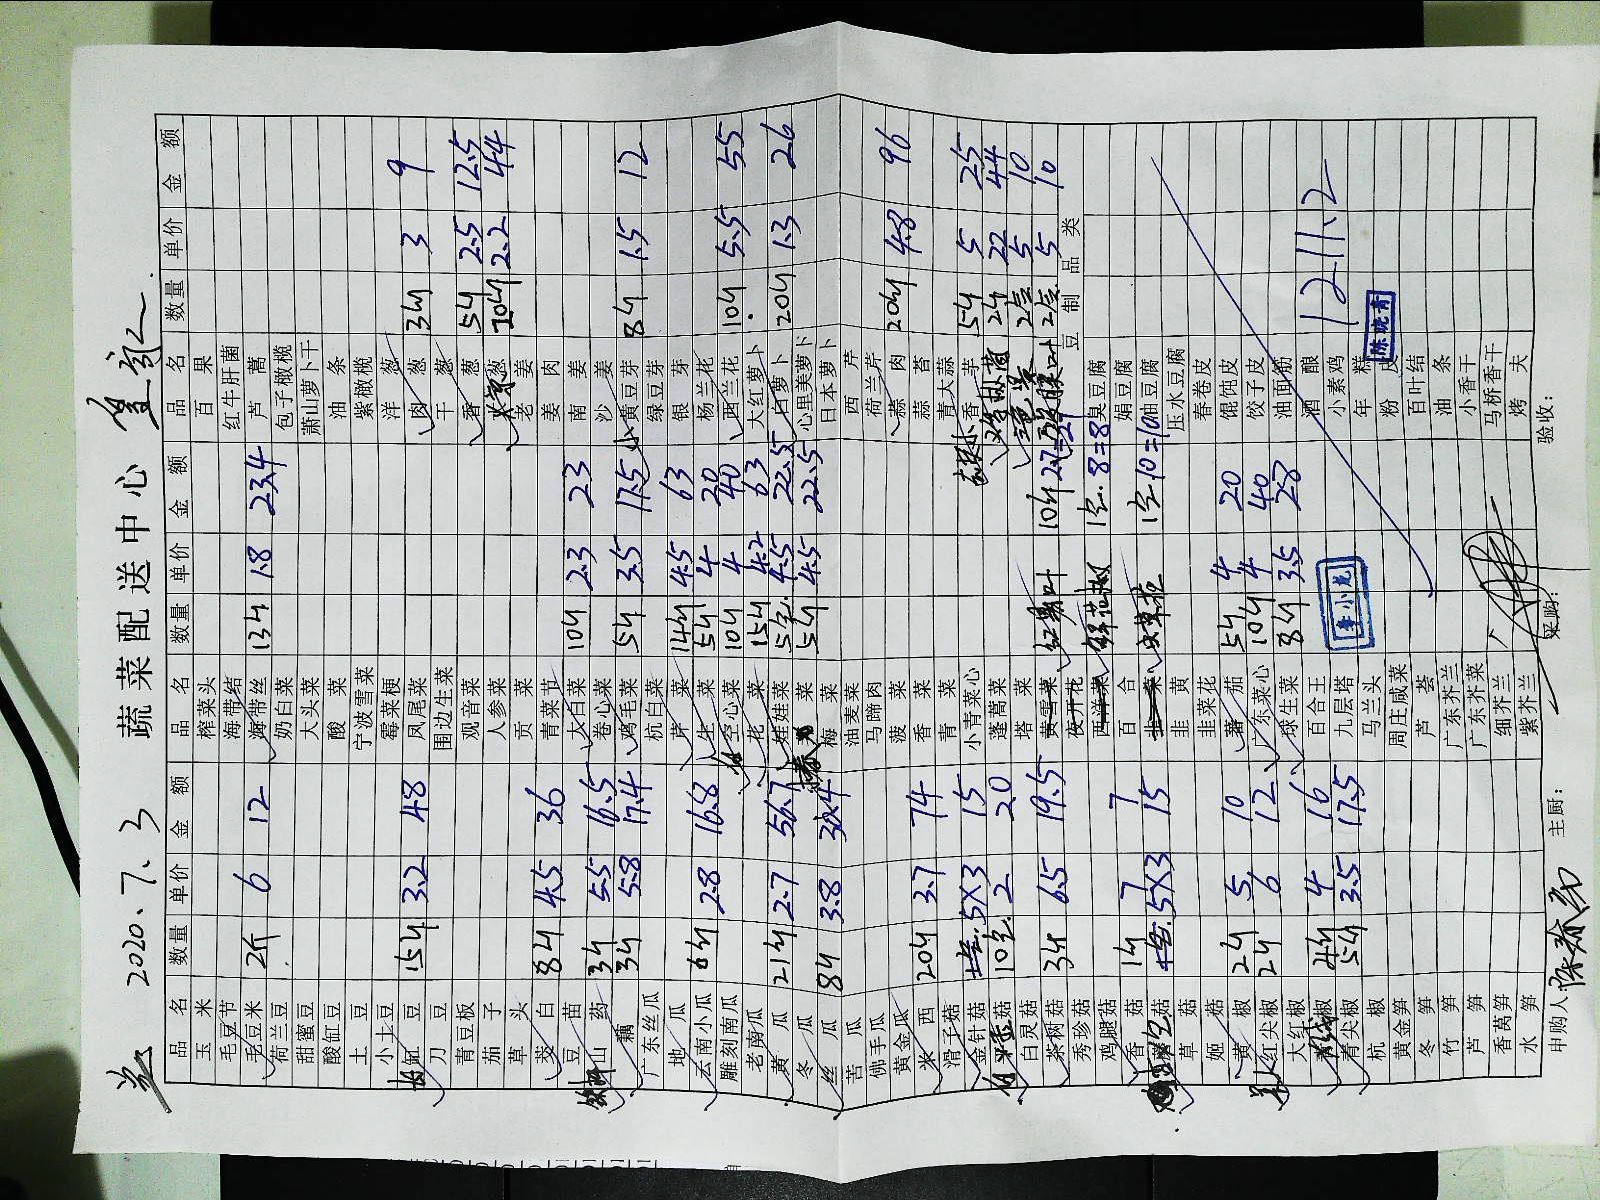 2020.7.3 蔬菜配送中心
品名 数量 单价 金额 品名 数量 单价 金额 品名 数量 单价 金额
玉米 榨菜头 百果
毛豆节 海带结 红牛肝菌
毛豆米 2斤 6 12 海带丝 13斤 1.8 23.4 芦蒿
荷兰豆 奶白菜 包子橄榄
甜蜜豆 大头菜 萧山萝卜干
酸缸豆 酸菜 油条
土豆 宁波雪菜 紫橄榄
小土豆 霉菜梗 洋葱
长缸豆 15斤 3.2 48 凤尾菜 肉葱 3斤 3 9
刀豆 围边生菜 干葱
青豆板 观音菜 香葱 5斤 2.5 12.5
茄子 人参菜 京葱 20斤 2.2 44
草头 贡菜 老姜
茭白 8斤 4.5 36 青菜节 姜肉
豆苗 大白菜 10斤 2.3 23 南姜
山药 3斤 5.5 16.5 卷心菜 沙姜
藕 3斤 5.8 17.4 鸡毛菜 5斤 3.5 17.5 小黄豆芽 8斤 1.5 12
广东丝瓜 杭白菜 绿豆芽
地瓜 芹菜 14斤 4.5 63 银芽
云南小瓜 6斤 2.8 16.8 生菜 5斤 4 20 杨兰花
雕刻南瓜 空心菜 10斤 4 40 西兰花 10斤 5.5 55
老南瓜 花菜 15斤 4.2 63 大红萝卜
黄瓜 21斤 2.7 56.7 娃娃菜 5包 4.5 22.5 白萝卜 20斤 1.3 26
冬瓜 菜 5斤 4.5 22.5 心里美萝卜
丝瓜 8斤 3.8 30.4 梅菜 日本萝卜
苦瓜 油麦菜 西芹
佛手瓜 马蹄肉 荷兰芹
黄金瓜 菠菜 蒜肉 20斤 4.8 96
米西 20斤 3.7 74 香菜 蒜苔
滑子菇 青菜 青大蒜
金针菇 5×3 15 小青菜心 小香芋 5斤 5 25
白玉菇 10包 2 20 蓬蒿菜 鸡枞菌 2斤 22 44
白灵菇 塔菜 2盒 5 10
茶树菇 3斤 6.5 19.5 黄雪菜 红薯叶 10斤 2.7=27 2盒 5 10
秀珍菇 夜开花 豆制品类
鸡腿菇 西洋菜 鲜花椒 1包.8=8 臭豆腐
香菇 1斤 7 7 百合 娟豆腐
菇 5×3 15 韭菜 1包.10=10 油豆腐
草菇 韭黄 压水豆腐
姬菇 韭菜花 春卷皮
黄椒 2斤 5 10 蕃茄 5斤 4 20 馄饨皮
大红尖椒 2斤 6 12 广东菜心 10斤 4 40 饺子皮
大红椒 球生菜 8斤 3.5 28 油面筋
青线椒 4斤 4 16 百合王 酒酿
青尖椒 5斤 3.5 17.5 九层塔 小素鸡 1211.2
杭椒 马兰头 年糕
黄金笋 周庄咸菜 粉皮
冬笋 芦荟 百叶结
竹笋 广东芥兰 油条
芦笋 广东芥菜 小香干
香莴笋 细芥兰 马桥香干
水笋 紫芥兰 烤夫
李小龙
陈晓青
申购人: 主厨: 采购: 验收: